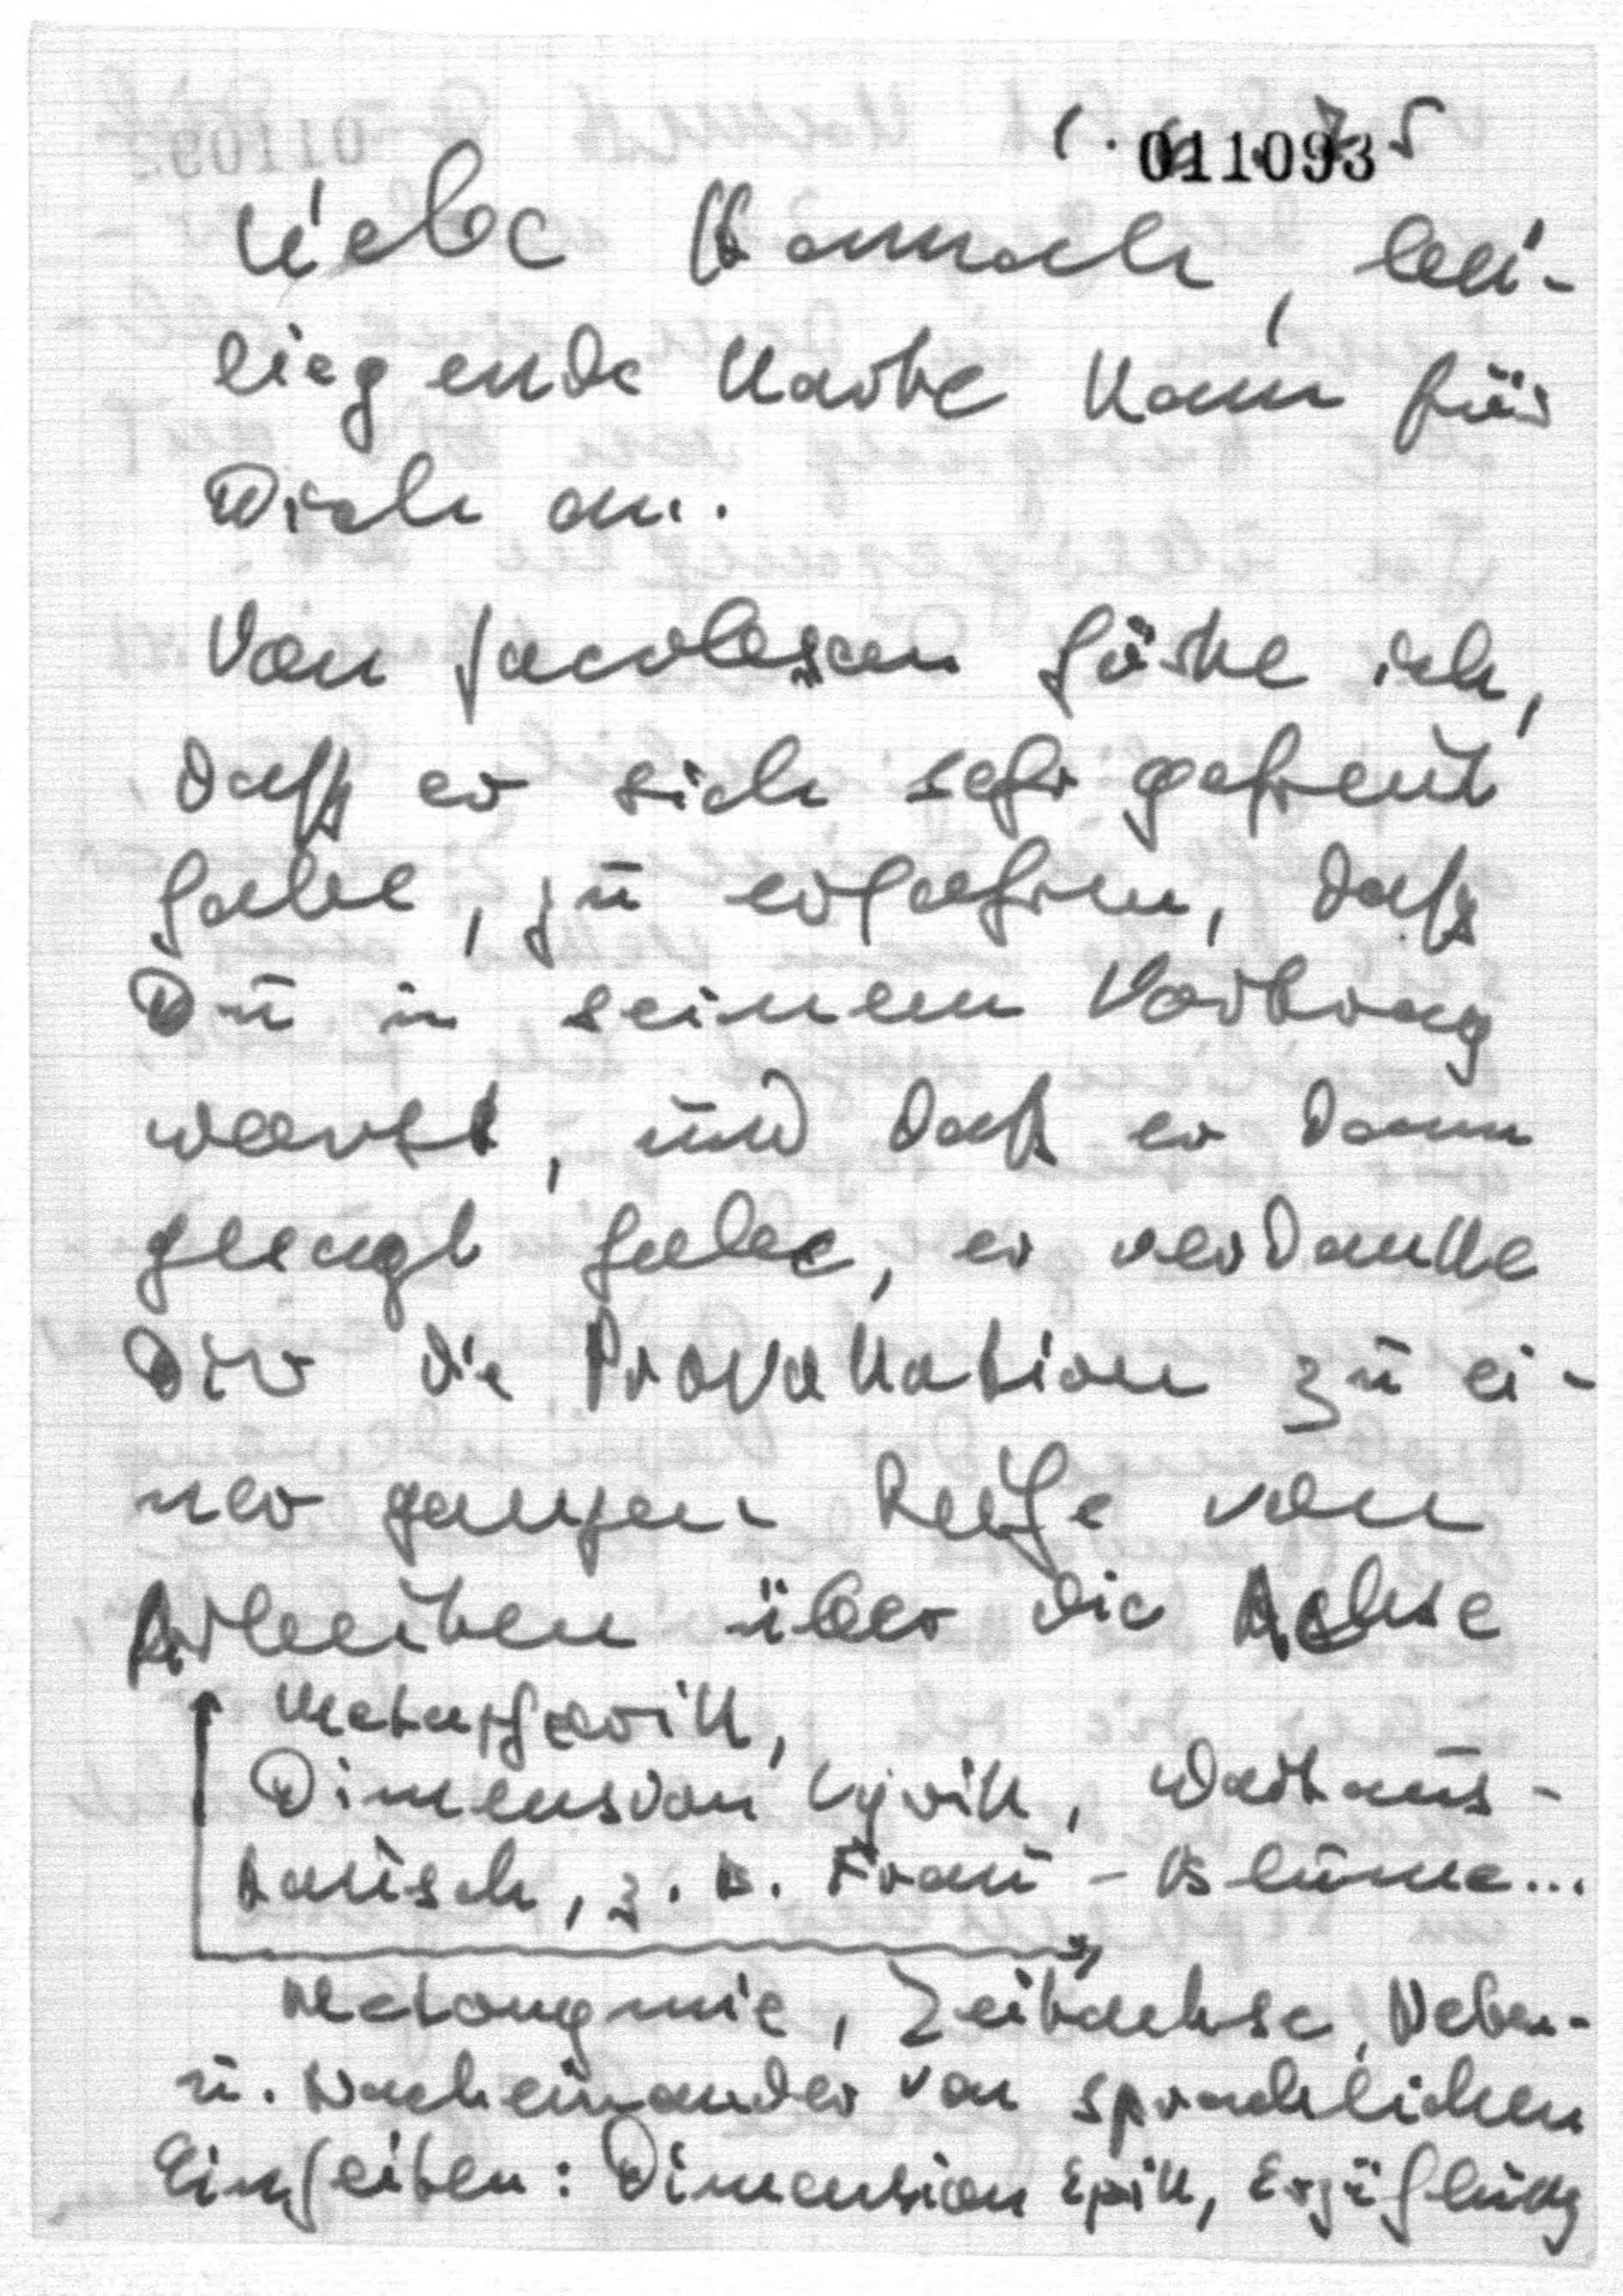 1. 7 5
011093
Liebe Hannah, bei-
liegende Karte kam für
Dich an.
Von Jacobson hörte ich,
daß er sich sehr gefreut
habe, zu erfahren, daß
Du in seinem Vortrag
warst, und daß er dann
gesagt habe, er verdanke
Dir die Provokation zu ei-
ner ganzen Reihe von
Arbeiten über die Achse
Metaphorik,
Dimension Lyrik, Wortaus-
tausch, z. B. Frau - Blume...
Metonymie, Zeitachse, Neben-
u. Nacheinander von sprachlichen
Einheiten: Dimension Epik, Erzählung